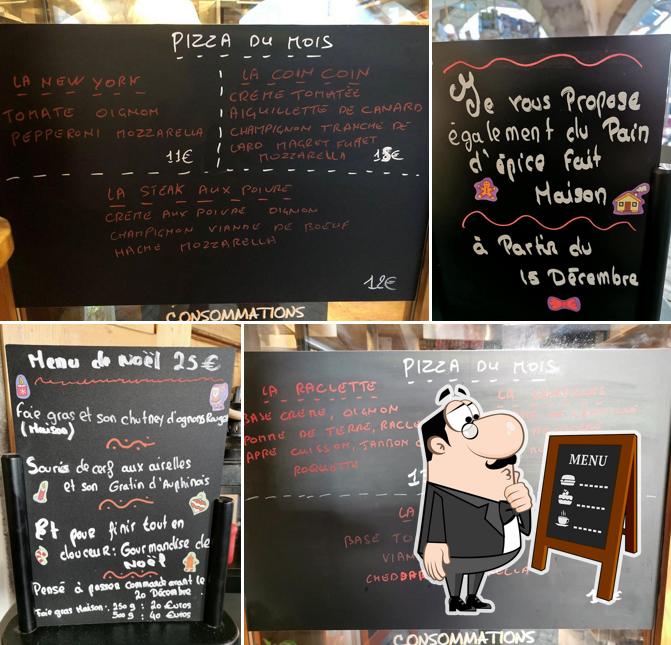 PIZZA DU MOIS
LA NEW YORK
TOMATE OIGNON
PEPPERONI MOZZARELLA
11€
LA COIN COIN
CRÈME TOMATÉE
AIGUILLETTE DE CANARD
CHAMPIGNON TRANCHE DE
LARD MAGRET FUMET
MOZZARELLA 13€
LA STEAK AUX POIVRE
CRÈME AUX POIVRE OIGNON
CHAMPIGNON VIANDE DE BOEUF
HACHÉ MOZZARELLA
12€
CONSOMMATIONS
Je vous Propose
également du Pain
d'épice Fait
Maison
à Partir du
15 Décembre
Menu de noël 25€
Foie gras et son chutney d'oignons Rouges
(Maison)
Souris de cerf aux airelles
et son Gratin d'Auphinois
Et pour finir tout en
douceur: Gourmandise de
NOËl
Pensé à passer commande avant le
20 Décembre
Foie gras Maison: 250g : 20 Euros
500g : 40 Euros
PIZZA DU MOIS
LA RACLETTE
BASE CREME, OIGNON
POMME DE TERRE, RACL
APRE CUISSON, JAMBON
ROQUETTE
LA
BASE TO
VIAN
CHEDDAR
ELLA
MENU
CONSOMMATIONS